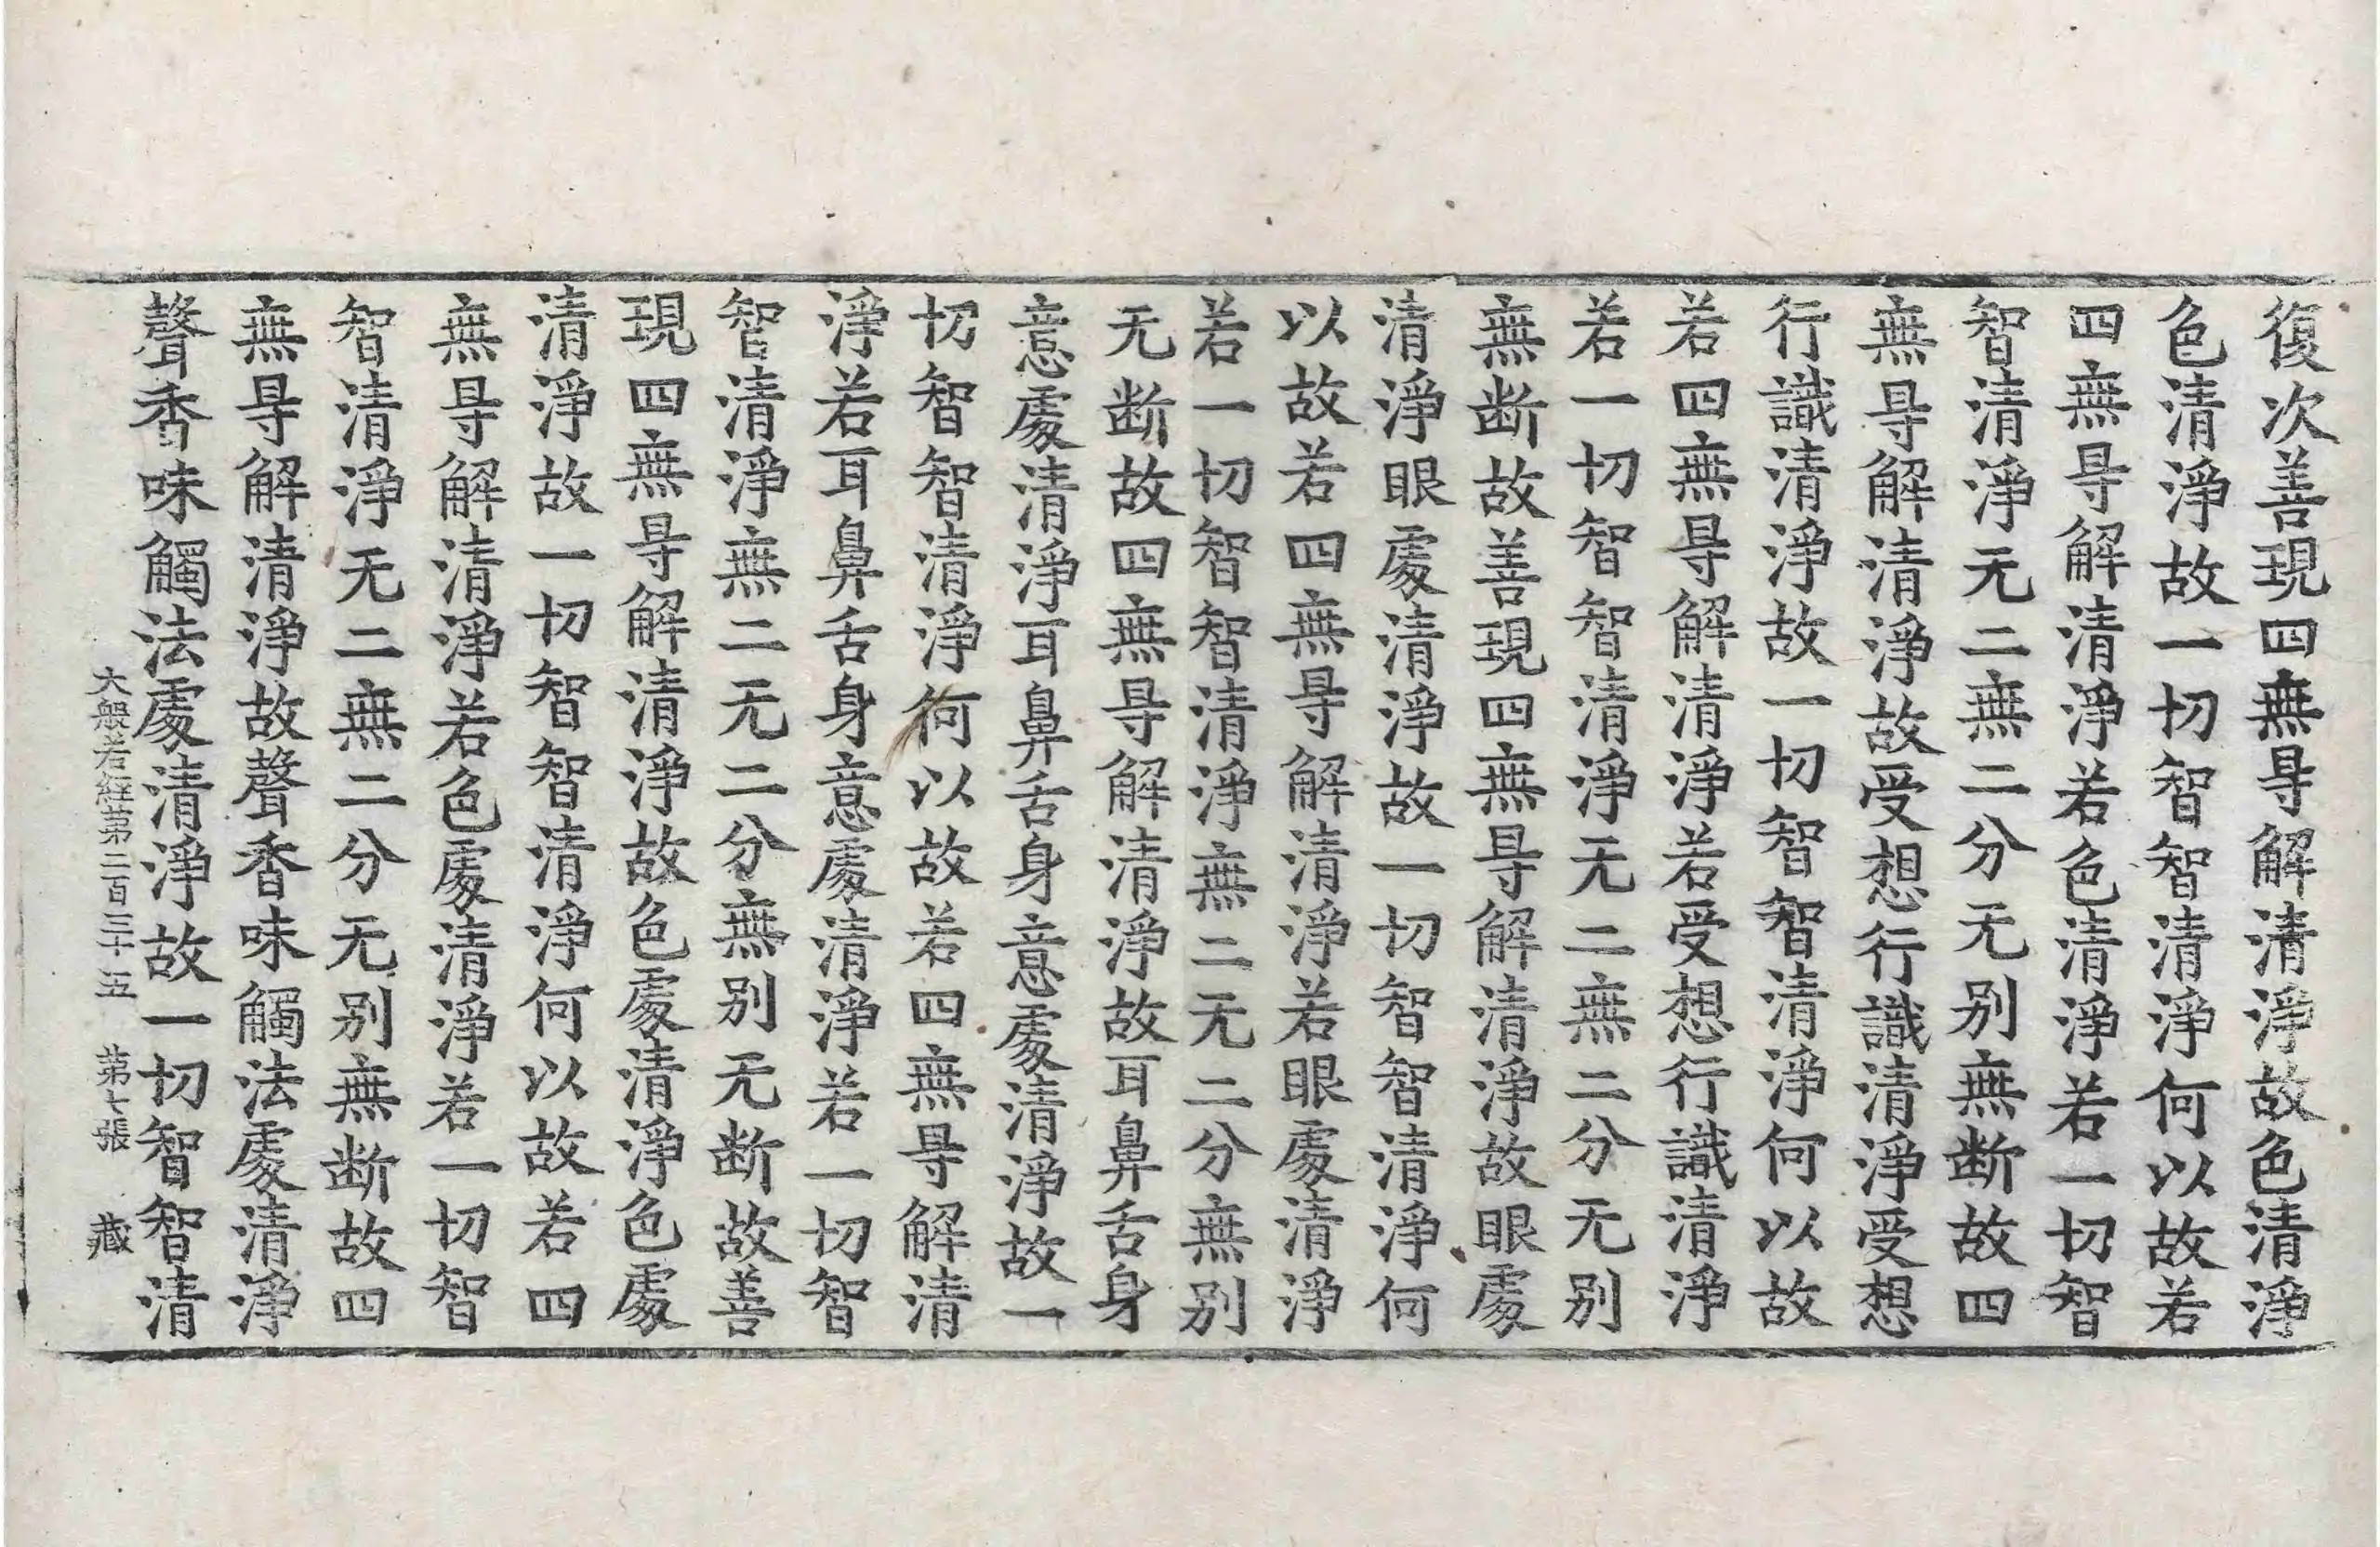 復次善現四無㝵解清淨故色清淨
色清淨故一切智智清淨何以故若
四無㝵解清淨若色清淨若一切智
智清淨无二無二分无别無断故四
無㝵解清淨故受想行識清淨受想
行識清淨故一切智智清淨何以故
若四無㝵解清淨若受想行識清淨
若一切智智清淨无二無二分无别
無断故善現四無㝵解清淨故眼處
清淨眼處清淨故一切智智清淨何
以故若四無㝵解清淨若眼處清淨
若一切智智清淨無二无二分無别
无断故四無㝵解清淨故耳鼻舌身
意處清淨耳鼻舌身意處清淨故一
切智智清淨何以故若四無㝵解清
淨若耳鼻舌身意處清淨若一切智
智清淨無二无二分無别无断故善
現四無㝵解清淨故色處清淨色處
清淨故一切智智清淨何以故若四
無㝵解清淨若色處清淨若一切智
智清淨无二無二分无别無断故四
無㝵解清淨故聲香味觸法處清淨
聲香味觸法處清淨故一切智智清
大般若經第二百三十五 第七張 藏